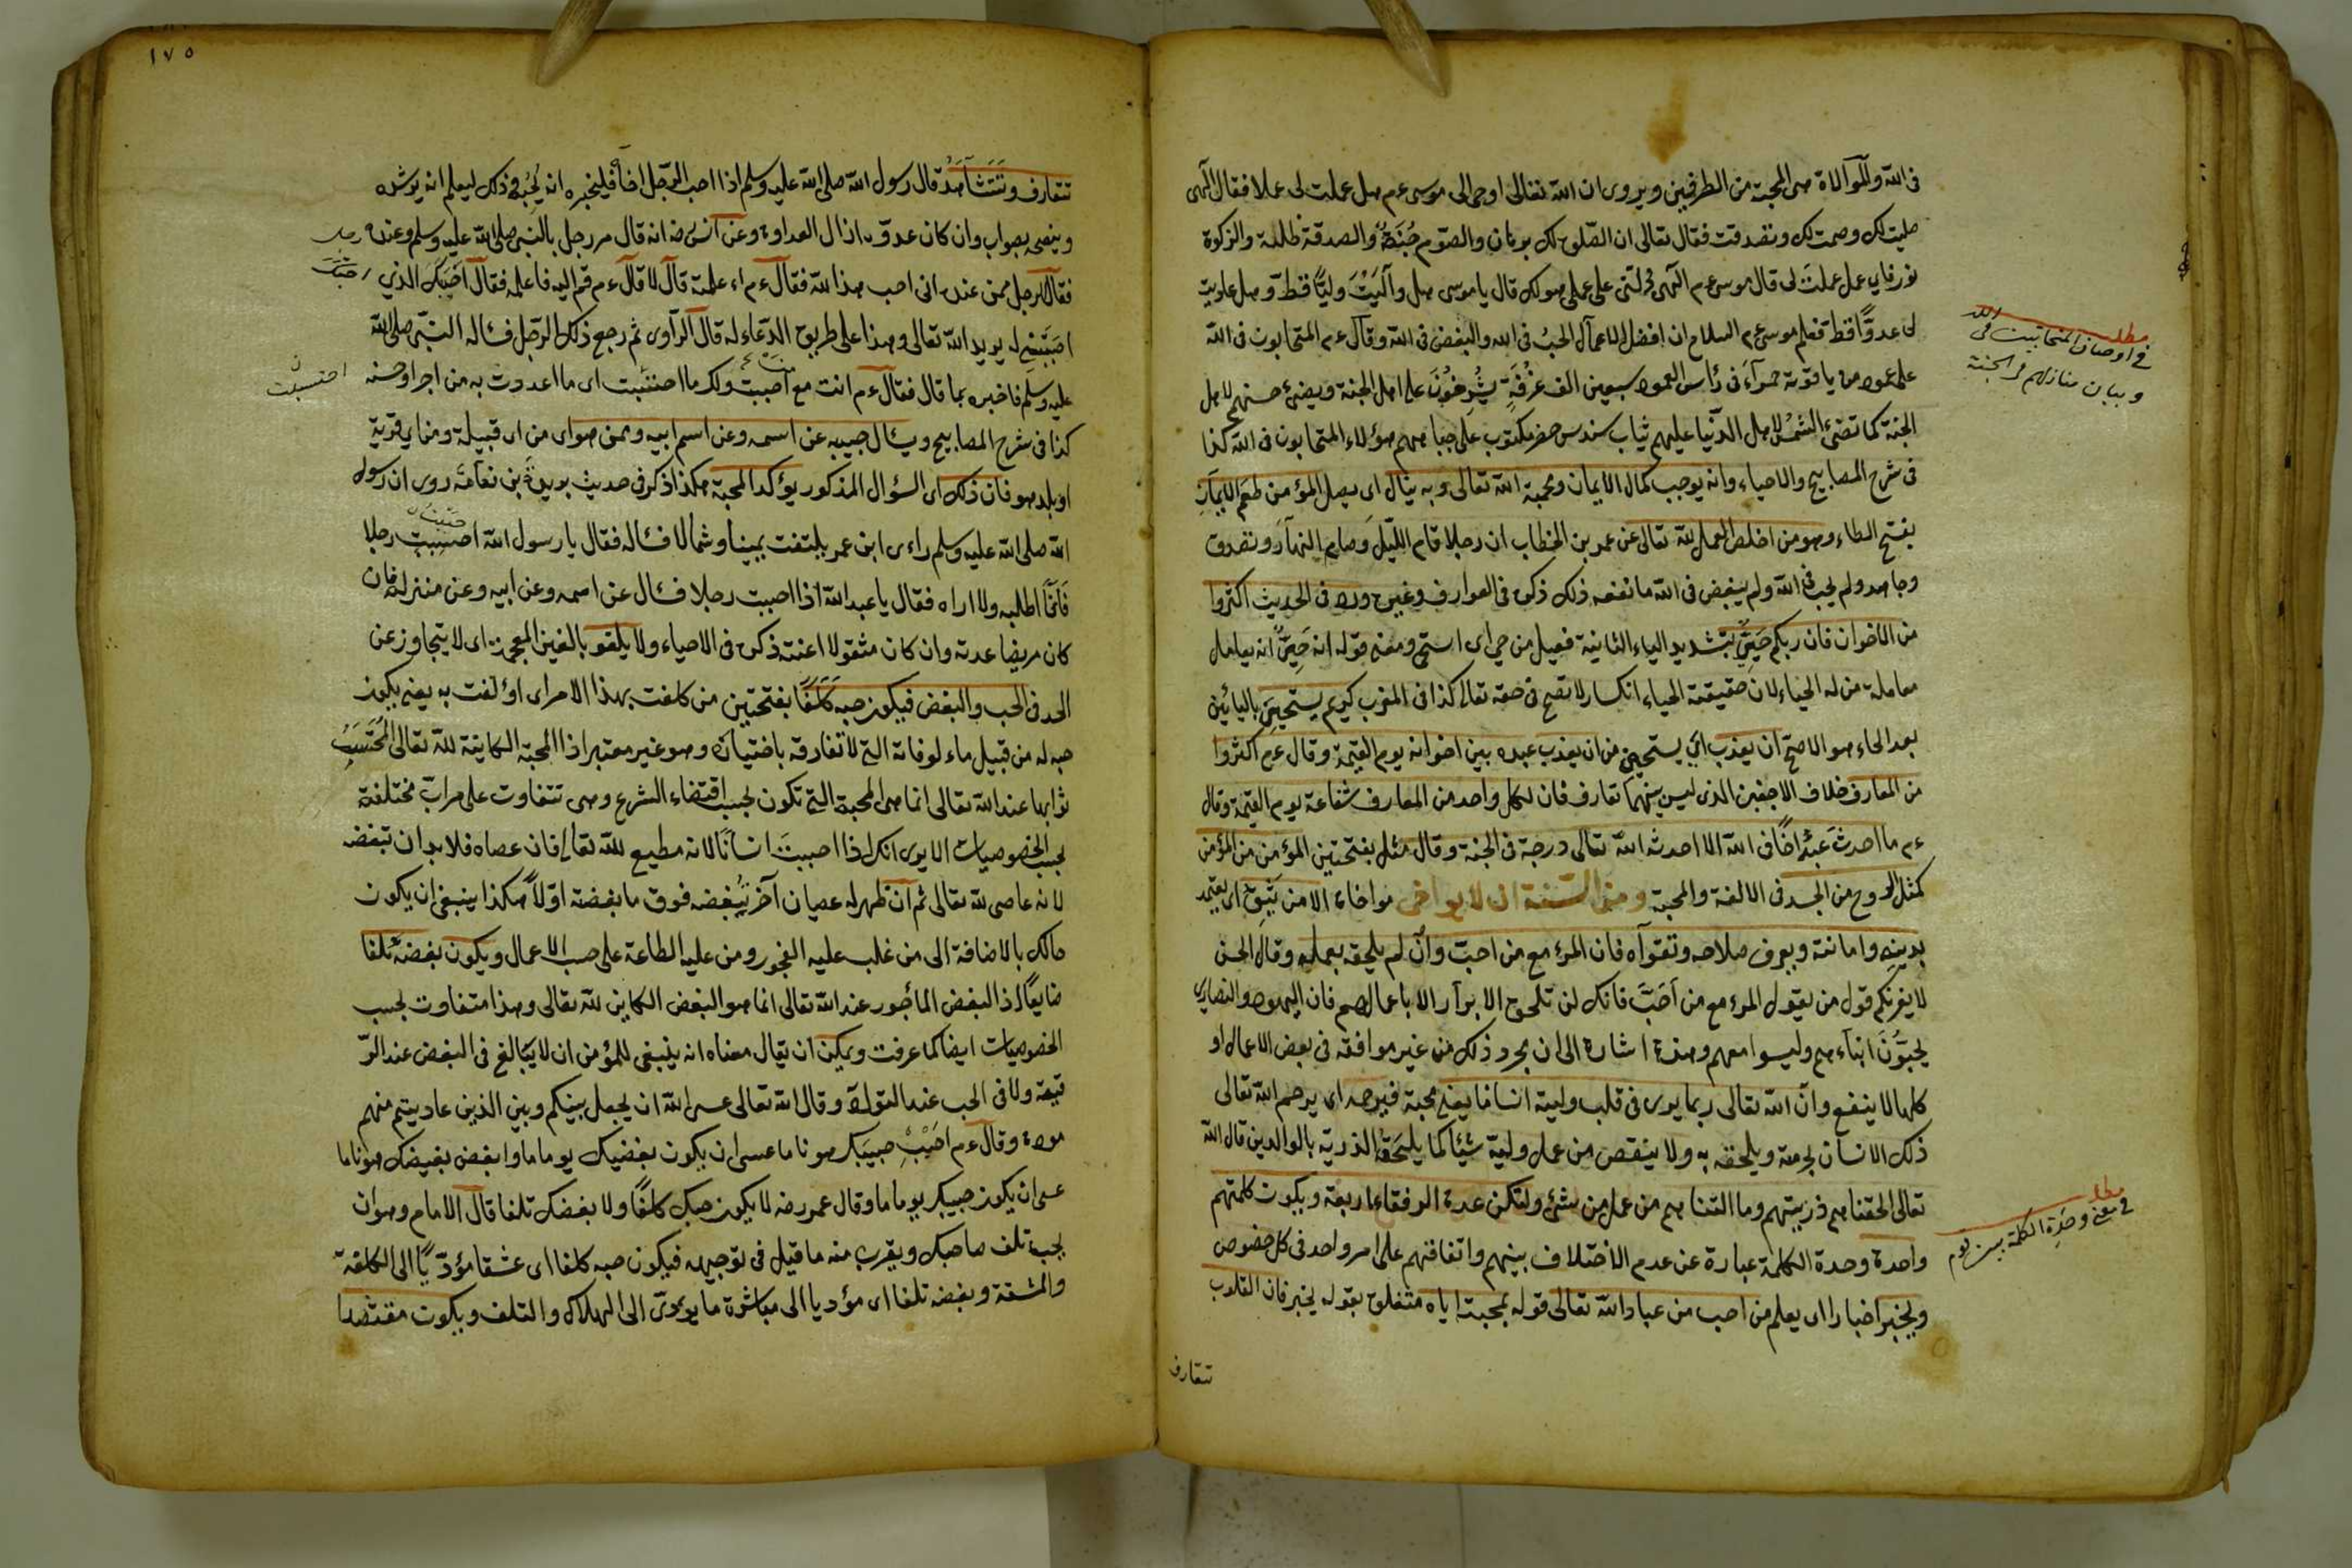 فى الله والموالاة هى المحبة من الطرفين ويروى ان الله تعالى اوحى الى موسى عم هل عملت لى عملا فقال الهى
صليت لك وصمت لك وتصدقت فقال تعالى ان الصلوة لك برهان والصوم جُنَّةٌ والصدقة ظلمة والزكوة
نور فاى عمل عملت لى قال موسى عم الهى دُلَّنى على عمل هو لك قال يا موسى هل وآليَتْ وليًّا قط وهل عاديت
لى عدوًّا قط فعلم موسى عم السلام ان افضل الاعمال الحبُّ فى الله والبغض فى الله وقال عم المتحابون فى الله
على عمود من ياقوتة حمرآء فى رأس العمود سبعين الف غُرْفَةٍ يُشْرِفُوْنَ على اهل الجنة ويضئ حسنهم لاهل
الجنة كما تضئ الشمس لاهل الدنيا عليهم ثياب سندس خضر مكتوب على جباههم هؤلاء المتحابون فى الله كذا
فى شرح المصابيح والاحياء وانه يوجب كمال الايمان ومحبة الله تعالى وبه ينال اى يصل المؤمن طعم الايمان
بفتح الطاء وهو من اخلص العمل لله تعالى عن عمر بن الخطاب ان رجلا قام الليل وصام النهار وتصدق
وجاهد ولم يحب فى الله ولم يبغض فى الله ما نفعه ذلك ذكره فى العوارف وغيره ورد فى الحديث اكثروا
من الاخوان فان ربكم حَيِىٌّ بتشديد الياء الثانية فعيل من حيى اى استحى ومعنى قوله انه حَيِىٌّ انه يعامل
معاملة من له الحياء لان حقيقة الحياء انكسار لا تصح فى حقه تعالى كذا فى المغرب كريم يستحيى باليائين
بعد الحاء هو الاصح ان يعذب اى يستحيى من ان يعذب عبده بين اخوانه يوم القيمة وقال عم اكثروا
من المعارف خلاف الاجنبى الذى ليس بينهما تعارف فان لكل واحد من المعارف شفاعة يوم القيمة وقال
عم ما احدث عَبْدٌ اخًا فى الله الا احدث الله تعالى درجة فى الجنة وقال مثل بفتحتين المؤمن من المؤمن
كمثل الروح من الجسد فى الالفة والمحبة ومن السنة ان لا يواخى مواخاة الا من يَثِقُ اى يعتمد
بدينه وامانته ويعرف صلاحه وتقواه فان المرء مع من احبّ وان لم يلحقه بعمله وقال الحسن
لا يغرنكم قول من يقول المرء مع من اَحَبَّ فانك لن تلحق الابرآر الا باعمالهم فان اليهود والنصارى
يحبّون انبيآءهم وليسوا معهم وهذه اشارة الى ان مجرد ذلك من غير موافقة فى بعض الاعمال او
كلها لا ينفع وانّ الله تعالى ربما يرى فى قلب وليه انسانا يعنى محبة فيرحمه اى يرحم الله تعالى
ذلك الانسان لحرمته ويلحقه به ولا ينقص من عمل وليه شيئا كما يلحق الذرية بالوالدين قال الله
تعالى الحقنا بهم ذريتهم وما التناهم من عملهم من شئ ولتكن عدة الرفقاء اربعة ويكون كلمتهم
واحدة وحدة الكلمة عبارة عن عدم الاختلاف بينهم واتفاقهم على امر واحد فى كل خصوص
ويخبر اخبارا اى يعلم من احب من عباد الله تعالى قوله بمحبته اياه متعلق بقوله يخبر فان القلوب
تتعارف
مطلب
فى اوصاف المتحابين فى الله
وبيان منازلهم فى الجنة
مطلب
فى معنى وحدة الكلمة بين قوم
١٧٥
تتعارف وتتشاهد قال رسول الله صلى الله عليه وسلم اذا احب الرجل اخاه فليخبره انه يُحبّه وذلك ليعلم انه يرشده
وينصحه بصواب وان كان عدوّه ازال العداوة وعن انس رضه انه قال مر رجل بالنبى صلى الله عليه وسلم وعنده رجل
فقال رجل ممن عنده انى احب هذا لله فقال عم اء علمته قال لا قال عم قم اليه فاعلمه فقال اَحَبَّكَ الذى
احببتنى له يريد الله تعالى وهذا على طريق الدعاء له قال الراوى ثم رجع ذلك الرجل فسأله النبى صلى الله
عليه وسلم فاخبره بما قال فقال عم انت مع من احببت ولك ما احتسبت اى ما اعددت به من اجر او حسنه
كذا فى شرح المصابيح ويسأل حبيبه عن اسمه وعن اسم ابيه وممن هو اى من اى قبيلة ومن اى قرية
او بلد هو فان ذلك اى السؤال المذكور يؤكد المحبة هكذا ذكر فى حديث يزيد بن نعامة روى ان رسول
الله صلى الله عليه وسلم رأى ابن عمر يلتفت يمينا وشمالا فسأله فقال يا رسول الله احببت رجلا
فانا اطلبه ولا اراه فقال يا عبد الله اذا احببت رجلا فسال عن اسمه وعن ابيه وعن منزله فان
كان مريضا عدته وان كان مشغولا اعنته ذكره فى الاحياء ولا يلغو بالغين المعجمة اى لا يتجاوز عن
الحد فى الحب والبغض فيكون حبه كَلَفًا بفتحتين من كلفت بهذا الامر اى اولعت به يعنى يكون
حبه له من قبيل ماء لوفاته التى لا تفارقه باختياره وهو غير معتبر اذ المحبة الكاينة لله تعالى المُحتَسَبُ
ثوابها عند الله تعالى انما هى المحبة التى تكون بحسب اقتضاء الشرع وهى تتفاوت على مراتب مختلفة
بحسب الخصوصيات الا يرى انك اذا احببت انسانا لانه مطيع لله تعالى فان عصاه فلا بد ان تبغضه
لانه عاصى لله تعالى ثم ان ظهر له عصيان آخر تُبغِضه فوق ما بغضته اوّلًا هكذا ينبغى ان يكون
حالك بالاضافة الى من غلب عليه الفجور ومن عليه الطاعة على حسب الاعمال ويكون بغضه تلفا
ضايعًا اذ البغض المأجور عند الله تعالى انما هو البغض الكاين لله تعالى وهذا متفاوت بحسب
الخصوصيات ايضا كما عرفت ويمكن ان يقال معناه انه ينبغى للمؤمن ان لا يبالغ فى البغض عند الو
قيعة ولا فى الحب عند التولّاة وقال الله تعالى عسى الله ان يجعل بينكم وبين الذين عاديتم منهم
مودة وقال عم اَحْبِبْ حبيبك هونا ما عسى ان يكون بغيضك يوما ما وابغض بغيضك هونا ما
عسى ان يكون حبيبك يوما ما وقال عمر رضه لا يكون حبك كلفًا ولا بغضك تلفا قال الامام وهو ان
يحب تلف صاحبك ويقرب منه ما قيل فى توجيهه فيكون حبه كلفا اى عشقا مؤدّيًا الى الكلفة
والمشقة وبغضه تلفا اى مؤديا الى مباشرة ما يؤدى الى الهلاك والتلف ويكون مقتصدا
احتسبت